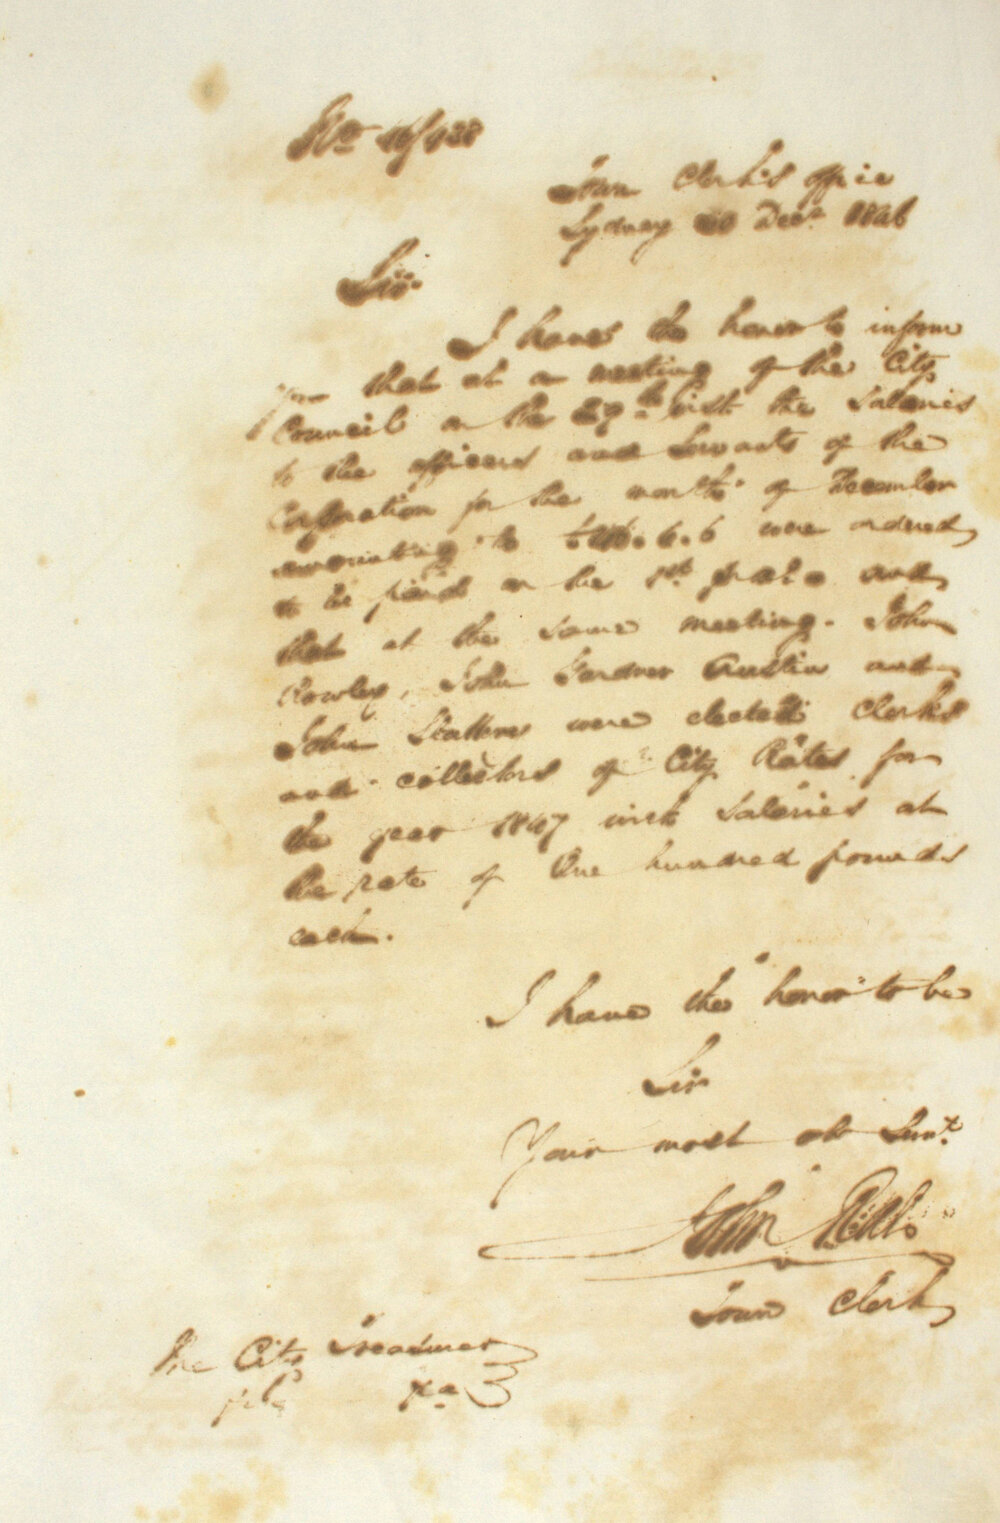 No 46/438
Town Clerk's Office
Sydney 30 Decr 1846
Sir
I have the honor to inform
you that at a meeting of the City
Council on the 29th inst the Salaries
to the officers and Servants of the
Corporation for the month of December
amounting to 6.6 were ordered
to be paid on the 1st and
that at the same meeting. John
Rowley, John Gardner Austin and
John were elected Clerks
and collectors of City Rates for
the year 1847 with Salaries at
the rate of One hundred pounds
each.
I have the honor to be
Sir
Your most ob Servt
John Rae
Town Clerk
The City Treasurer
&c &c